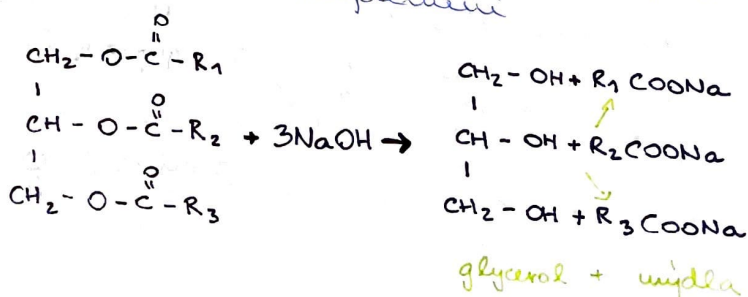 CH₂ - O - C(=O) - R₁
CH - O - C(=O) - R₂ + 3NaOH →
CH₂ - O - C(=O) - R₃
CH₂ - OH + R₁ COONa
CH - OH + R₂COONa
CH₂ - OH + R₃COONa
glycerol + mýdla